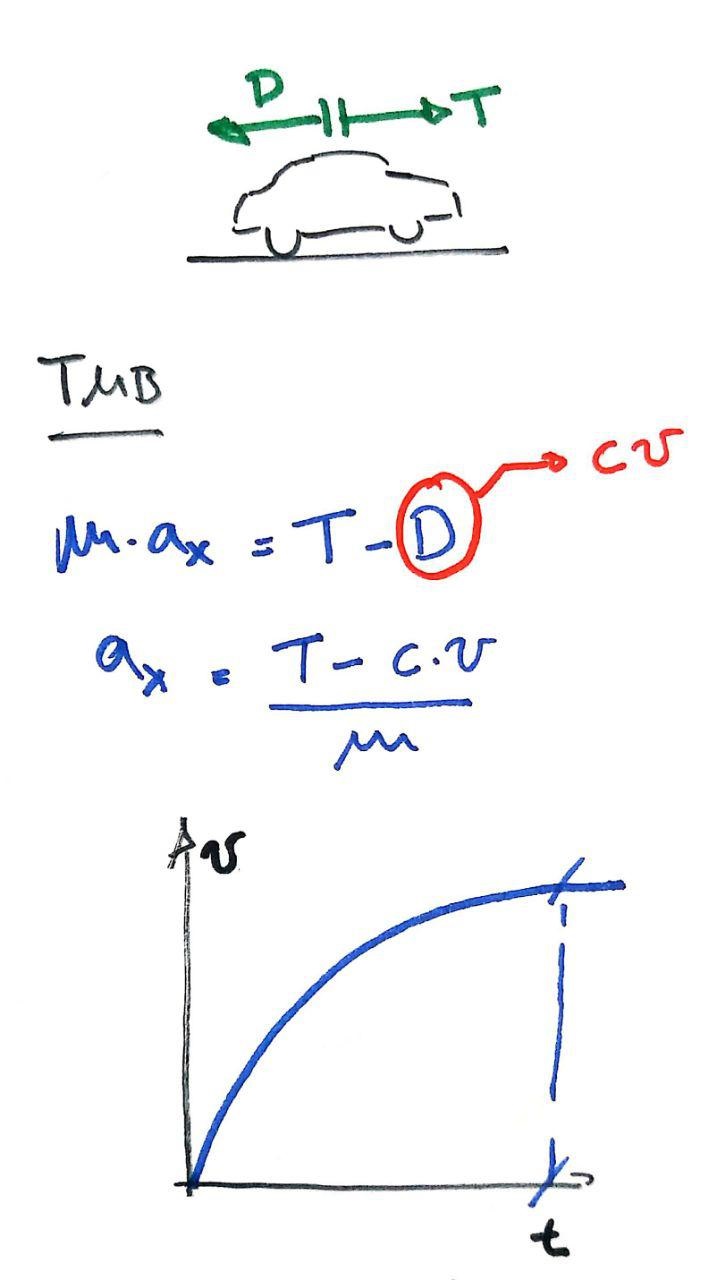 D T
TMB
m · aₓ = T - D → c v
aₓ = T - c · v / m
v
t